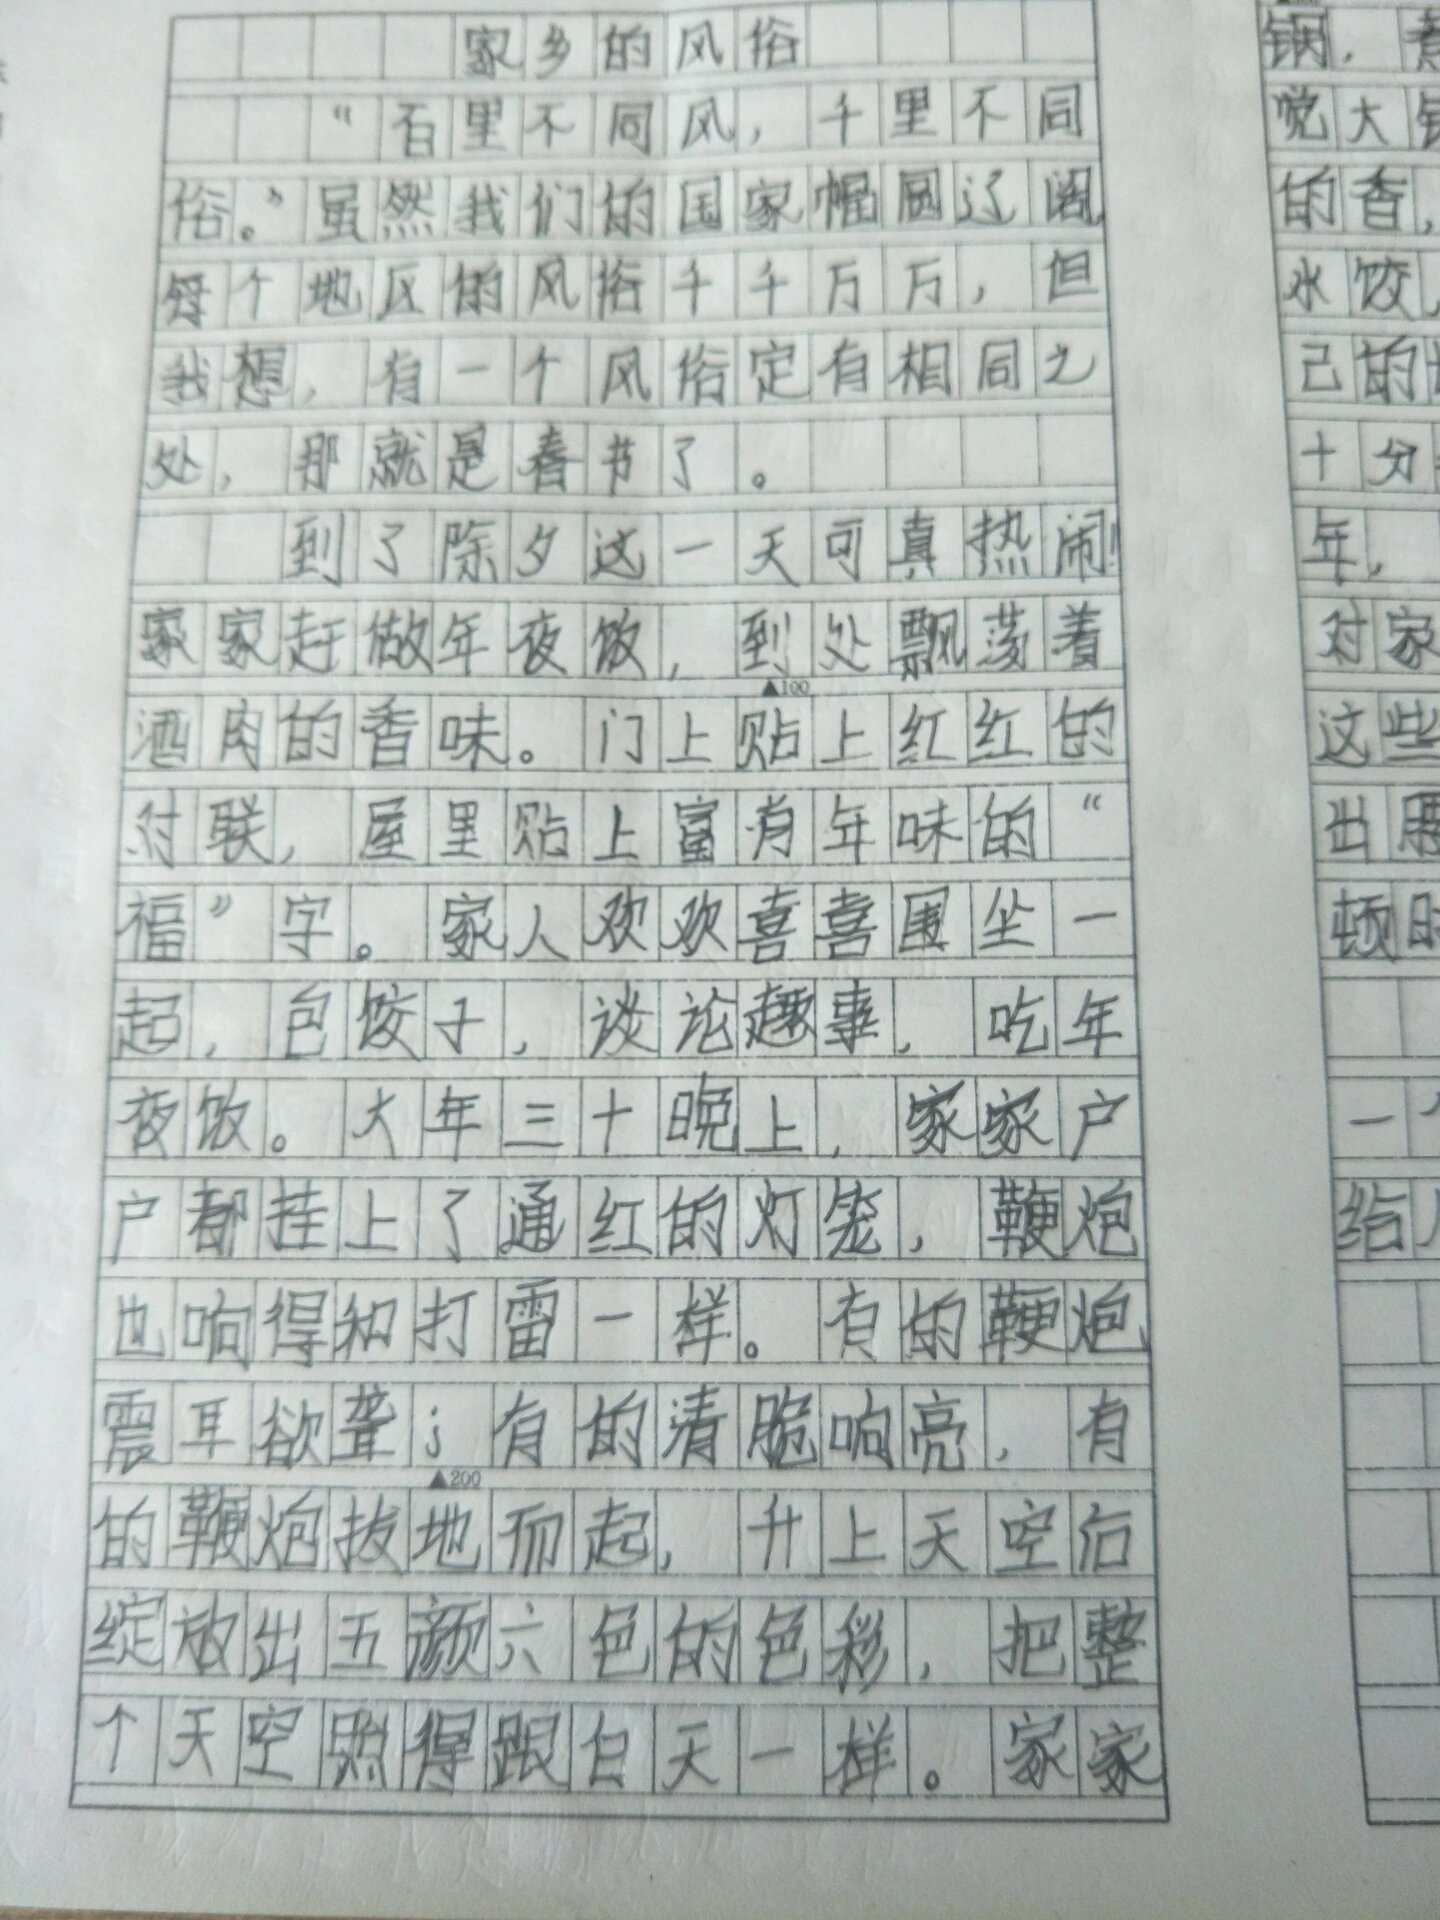 家乡的风俗
“百里不同风，千里不同
俗。”虽然我们的国家幅圆辽阔
每个地区的风俗千千万万，但
我想，有一个风俗定有相同之
处，那就是春节了。
到了除夕这一天可真热闹！
家家赶做年夜饭，到处飘荡着
▲100
酒肉的香味。门上贴上红红的
对联，屋里贴上富有年味的“
福”字。家人欢欢喜喜围坐一
起，包饺子，谈论趣事，吃年
夜饭。大年三十晚上，家家户
户都挂上了通红的灯笼，鞭炮
也响得和打雷一样。有的鞭炮
震耳欲聋；有的清脆响亮，有
▲200
的鞭炮拔地而起，升上天空后
绽放出五颜六色的色彩，把整
个天空照得跟白天一样。家家
锅，煮
大
的香，
水饺，
己的
十分
年，
对家
这些
出
顿时
一个
给